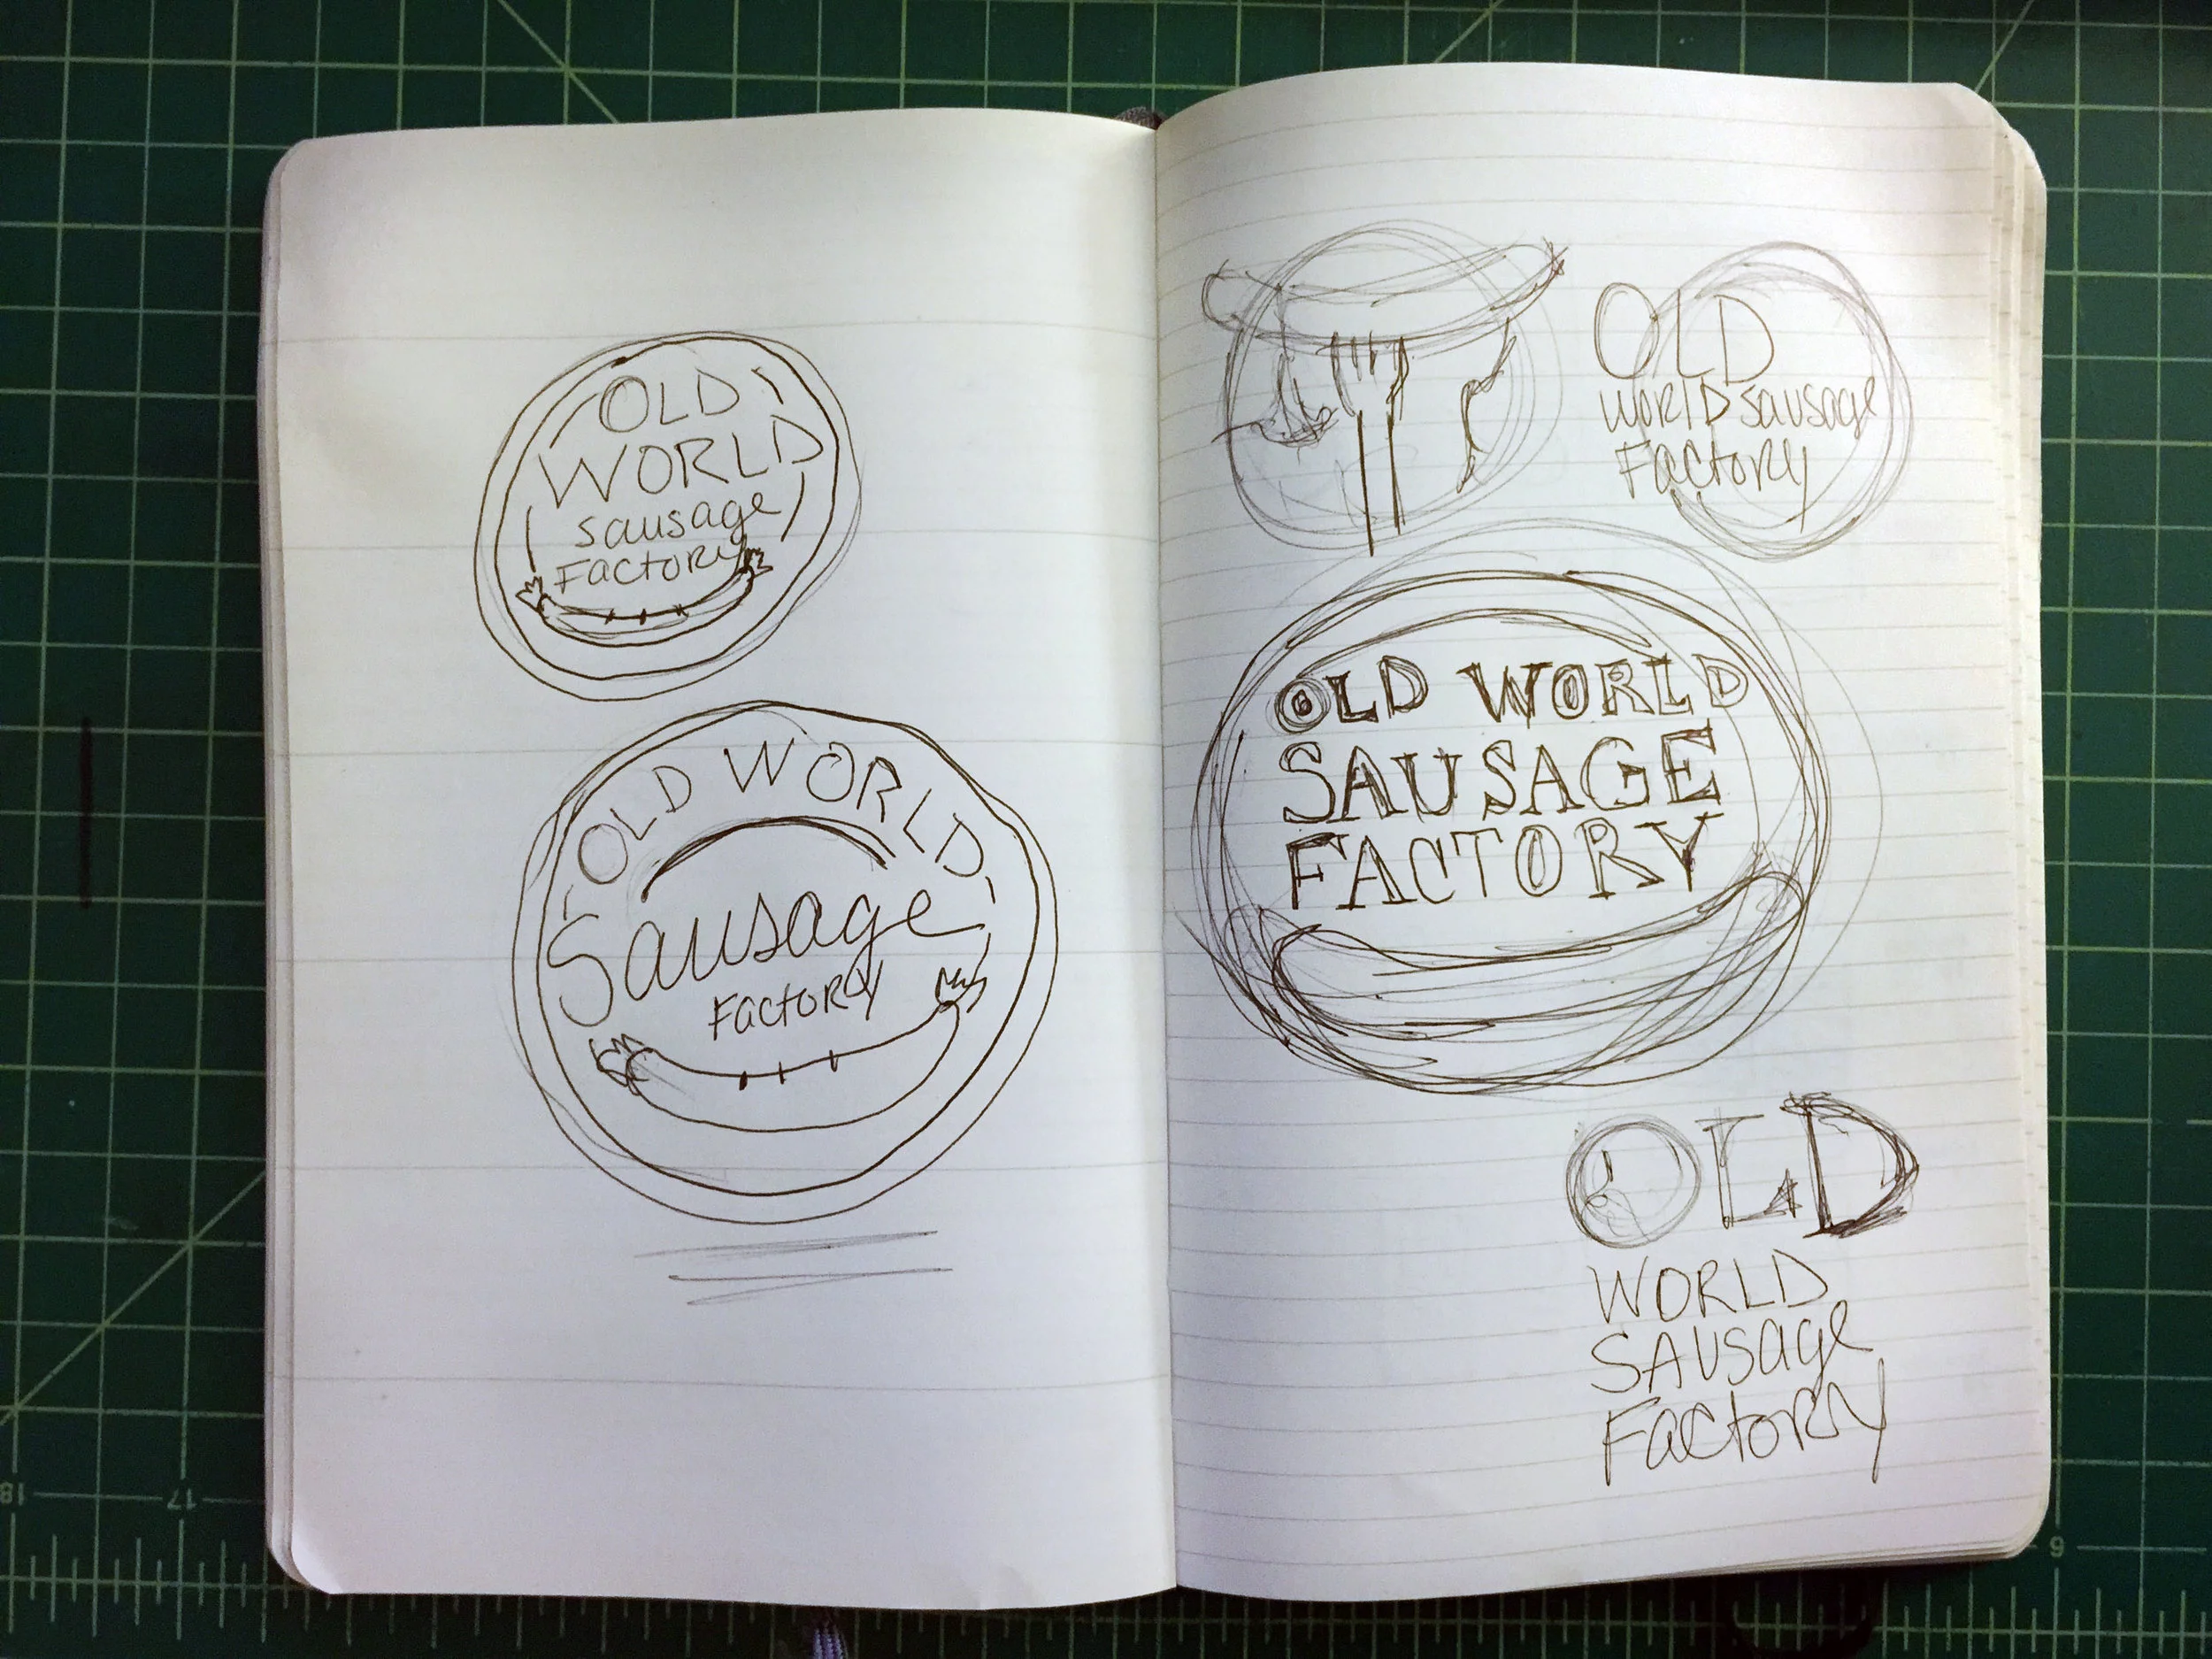 OLD
WORLD
sausage
Factory
OLD WORLD
Sausage
Factory
OLD
WORLD sausage
Factory
OLD WORLD
SAUSAGE
FACTORY
OLD
WORLD
SAUSAge
Factory
18
17
6